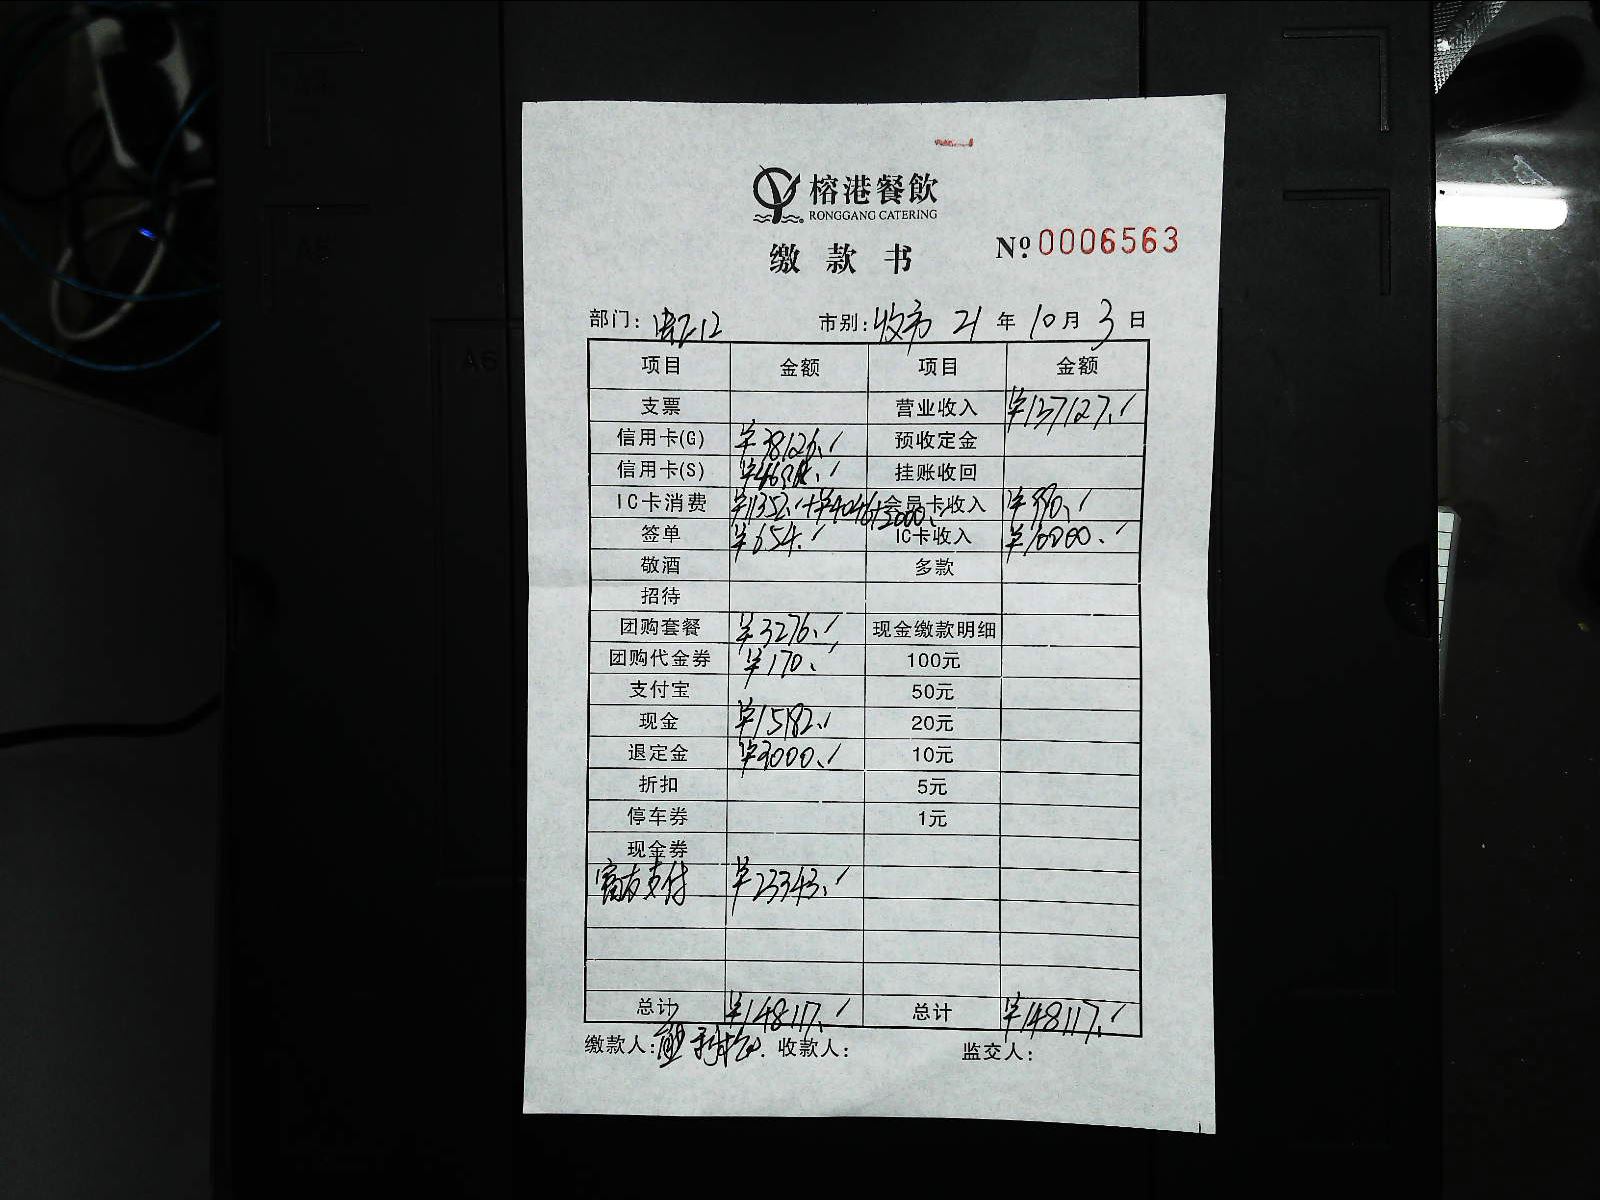 榕港餐飲
RONGGANG CATERING
缴款书 №0006563
部门: 市别: 收市 21年10月3日
项目 金额 项目 金额
支票 营业收入 ¥137127.
信用卡(G) ¥38126. 预收定金
信用卡(S) 挂账收回
IC卡消费 ¥11352.+¥4046+2000. 会员卡收入 ¥990.
签单 ¥654. IC卡收入 ¥10000.
敬酒 多款
招待
团购套餐 ¥3276. 现金缴款明细
团购代金券 ¥170. 100元
支付宝 50元
现金 ¥15182. 20元
退定金 ¥3000. 10元
折扣 5元
停车券 1元
现金券
支付 ¥23343.
总计 ¥148117. 总计 ¥148117.
缴款人: 收款人: 监交人:
A5
A6